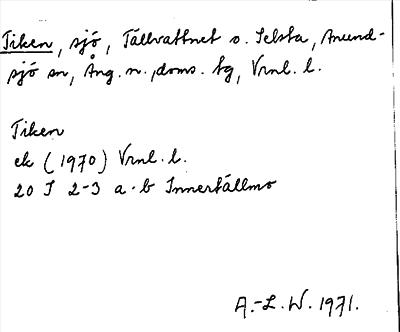 Tiken, sjö, Tällvattnet o. Selsta, Anund-
sjö sn, Ång. n. ,doms. tg, Vrnl. l.
Tiken
ek (1970) Vrnl. l.
20 I 2-3 a-b Innertällmo
A.-L. W. 1971.